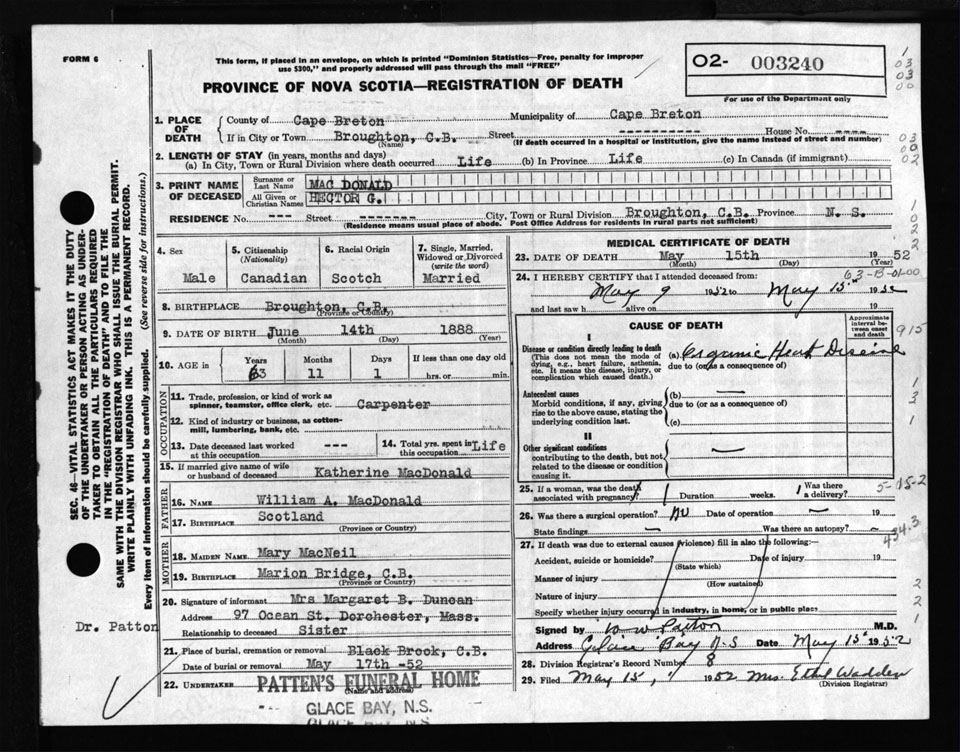 FORM 6
This form, if placed in an envelope, on which is printed "Dominion Statistics—Free, penalty for improper
use $300," and properly addressed will pass through the mail "FREE"
PROVINCE OF NOVA SCOTIA—REGISTRATION OF DEATH
02- 003240
For use of the Department only
1. PLACE OF DEATH
County of Cape Breton Municipality of Cape Breton
If in City or Town Broughton, C.B. Street -------- House No. ----
(Name) (If death occurred in a hospital or institution, give the name instead of street and number)
2. LENGTH OF STAY (in years, months and days)
(a) In City, Town or Rural Division where death occurred Life (b) In Province Life (c) In Canada (if immigrant)
3. PRINT NAME OF DECEASED
Surname or Last Name MAC DONALD
All Given or Christian Names HECTOR G.
RESIDENCE No. --- Street ------- City, Town or Rural Division Broughton, C.B. Province N. S.
(Residence means usual place of abode. Post Office Address for residents in rural parts not sufficient)
4. Sex Male
5. Citizenship (Nationality) Canadian
6. Racial Origin Scotch
7. Single, Married, Widowed or Divorced (write the word) Married
8. BIRTHPLACE Broughton, C.B.
(Province or Country)
9. DATE OF BIRTH June 14th 1888
(Month) (Day) (Year)
10. AGE in Years Months Days If less than one day old
63 11 1 hrs. or min.
OCCUPATION
11. Trade, profession, or kind of work as
spinner, teamster, office clerk, etc. Carpenter
12. Kind of industry or business, as cotton-
mill, lumbering, bank, etc.
13. Date deceased last worked
at this occupation ---
14. Total yrs. spent in
this occupation Life
15. If married give name of wife
or husband of deceased Katherine MacDonald
FATHER
16. NAME William A. MacDonald
17. BIRTHPLACE Scotland
(Province or Country)
MOTHER
18. MAIDEN NAME Mary MacNeil
19. BIRTHPLACE Marion Bridge, C.B.
(Province or Country)
20. Signature of informant Mrs Margaret B. Duncan
Address 97 Ocean St. Dorchester, Mass.
Relationship to deceased Sister
21. Place of burial, cremation or removal Black Brook, C.B.
Date of burial or removal May 17th -52
22. UNDERTAKER PATTEN'S FUNERAL HOME
(Name and address)
GLACE BAY, N.S.
GLACE BAY, N.S.
MEDICAL CERTIFICATE OF DEATH
23. DATE OF DEATH May 15th 1952
(Month) (Day) (Year)
63-B-01-00
24. I HEREBY CERTIFY that I attended deceased from:
May 9 1952 to May 15th 1952
and last saw h alive on 19
CAUSE OF DEATH
Approximate interval between onset and death
I
Disease or condition directly leading to death
(This does not mean the mode of dying, e.g., heart failure, asthenia, etc. It means the disease, injury, or complication which caused death.)
(a) Organic Heart Disease
due to (or as a consequence of)
Antecedent causes
Morbid conditions, if any, giving rise to the above cause, stating the underlying condition last.
(b)
due to (or as a consequence of)
(c)
II
Other significant conditions
contributing to the death, but not related to the disease or condition causing it.
25. If a woman, was the death
associated with pregnancy? Duration weeks. Was there a delivery?
5-15-2
26. Was there a surgical operation? No Date of operation — 19
State findings — Was there an autopsy? —
434.3
27. If death was due to external causes (violence) fill in also the following:—
Accident, suicide or homicide? Date of injury 19
(State which)
Manner of injury
(How sustained)
Nature of injury
Specify whether injury occurred in industry, in home, or in public place
Signed by W W Patton M.D.
Address Glace Bay N.S Date May 15th 1952
28. Division Registrar's Record Number 8
29. Filed May 15, 1952 Mrs. Ethel Wadden
(Division Registrar)
SEC. 46—VITAL STATISTICS ACT MAKES IT THE DUTY
OF THE UNDERTAKER OR PERSON ACTING AS UNDER-
TAKER TO OBTAIN ALL THE PARTICULARS REQUIRED
IN THE "REGISTRATION OF DEATH" AND TO FILE THE
SAME WITH THE DIVISION REGISTRAR WHO SHALL ISSUE THE BURIAL PERMIT.
WRITE PLAINLY WITH UNFADING INK. THIS IS A PERMANENT RECORD.
Every item of information should be carefully supplied. (See reverse side for instructions.)
Dr. Patton
1
03
03
00
03
00
02
1
0
2
2
915
1
3
1
2
2
1